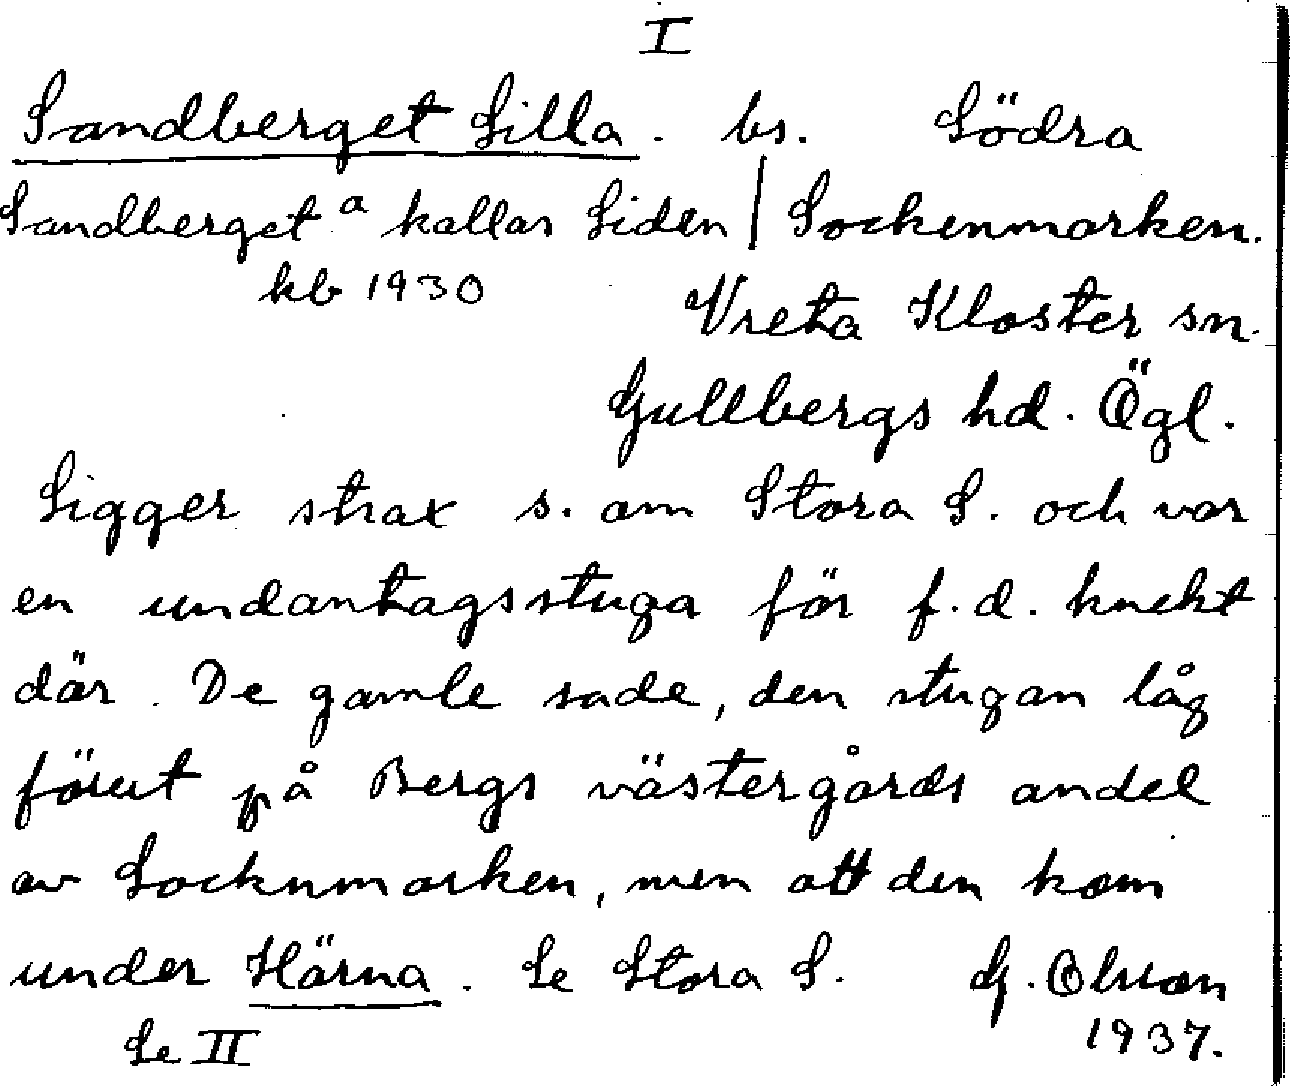 I
Sandberget Lilla. bs. Södra
Sandberget a kallas Liden | Sockenmarken.
kb 1930 Vreta Kloster sn.
Gullbergs hd. Ögl.
Ligger strax s. om Stora S. och var
en undantagsstuga för f.d. knekt
där. De gamle sade, den stugan låg
förut på Bergs västergårds andel
av Socknmarken, men att den kom
under Härna. Se Stora S. G. Olsson
Se II 1937.